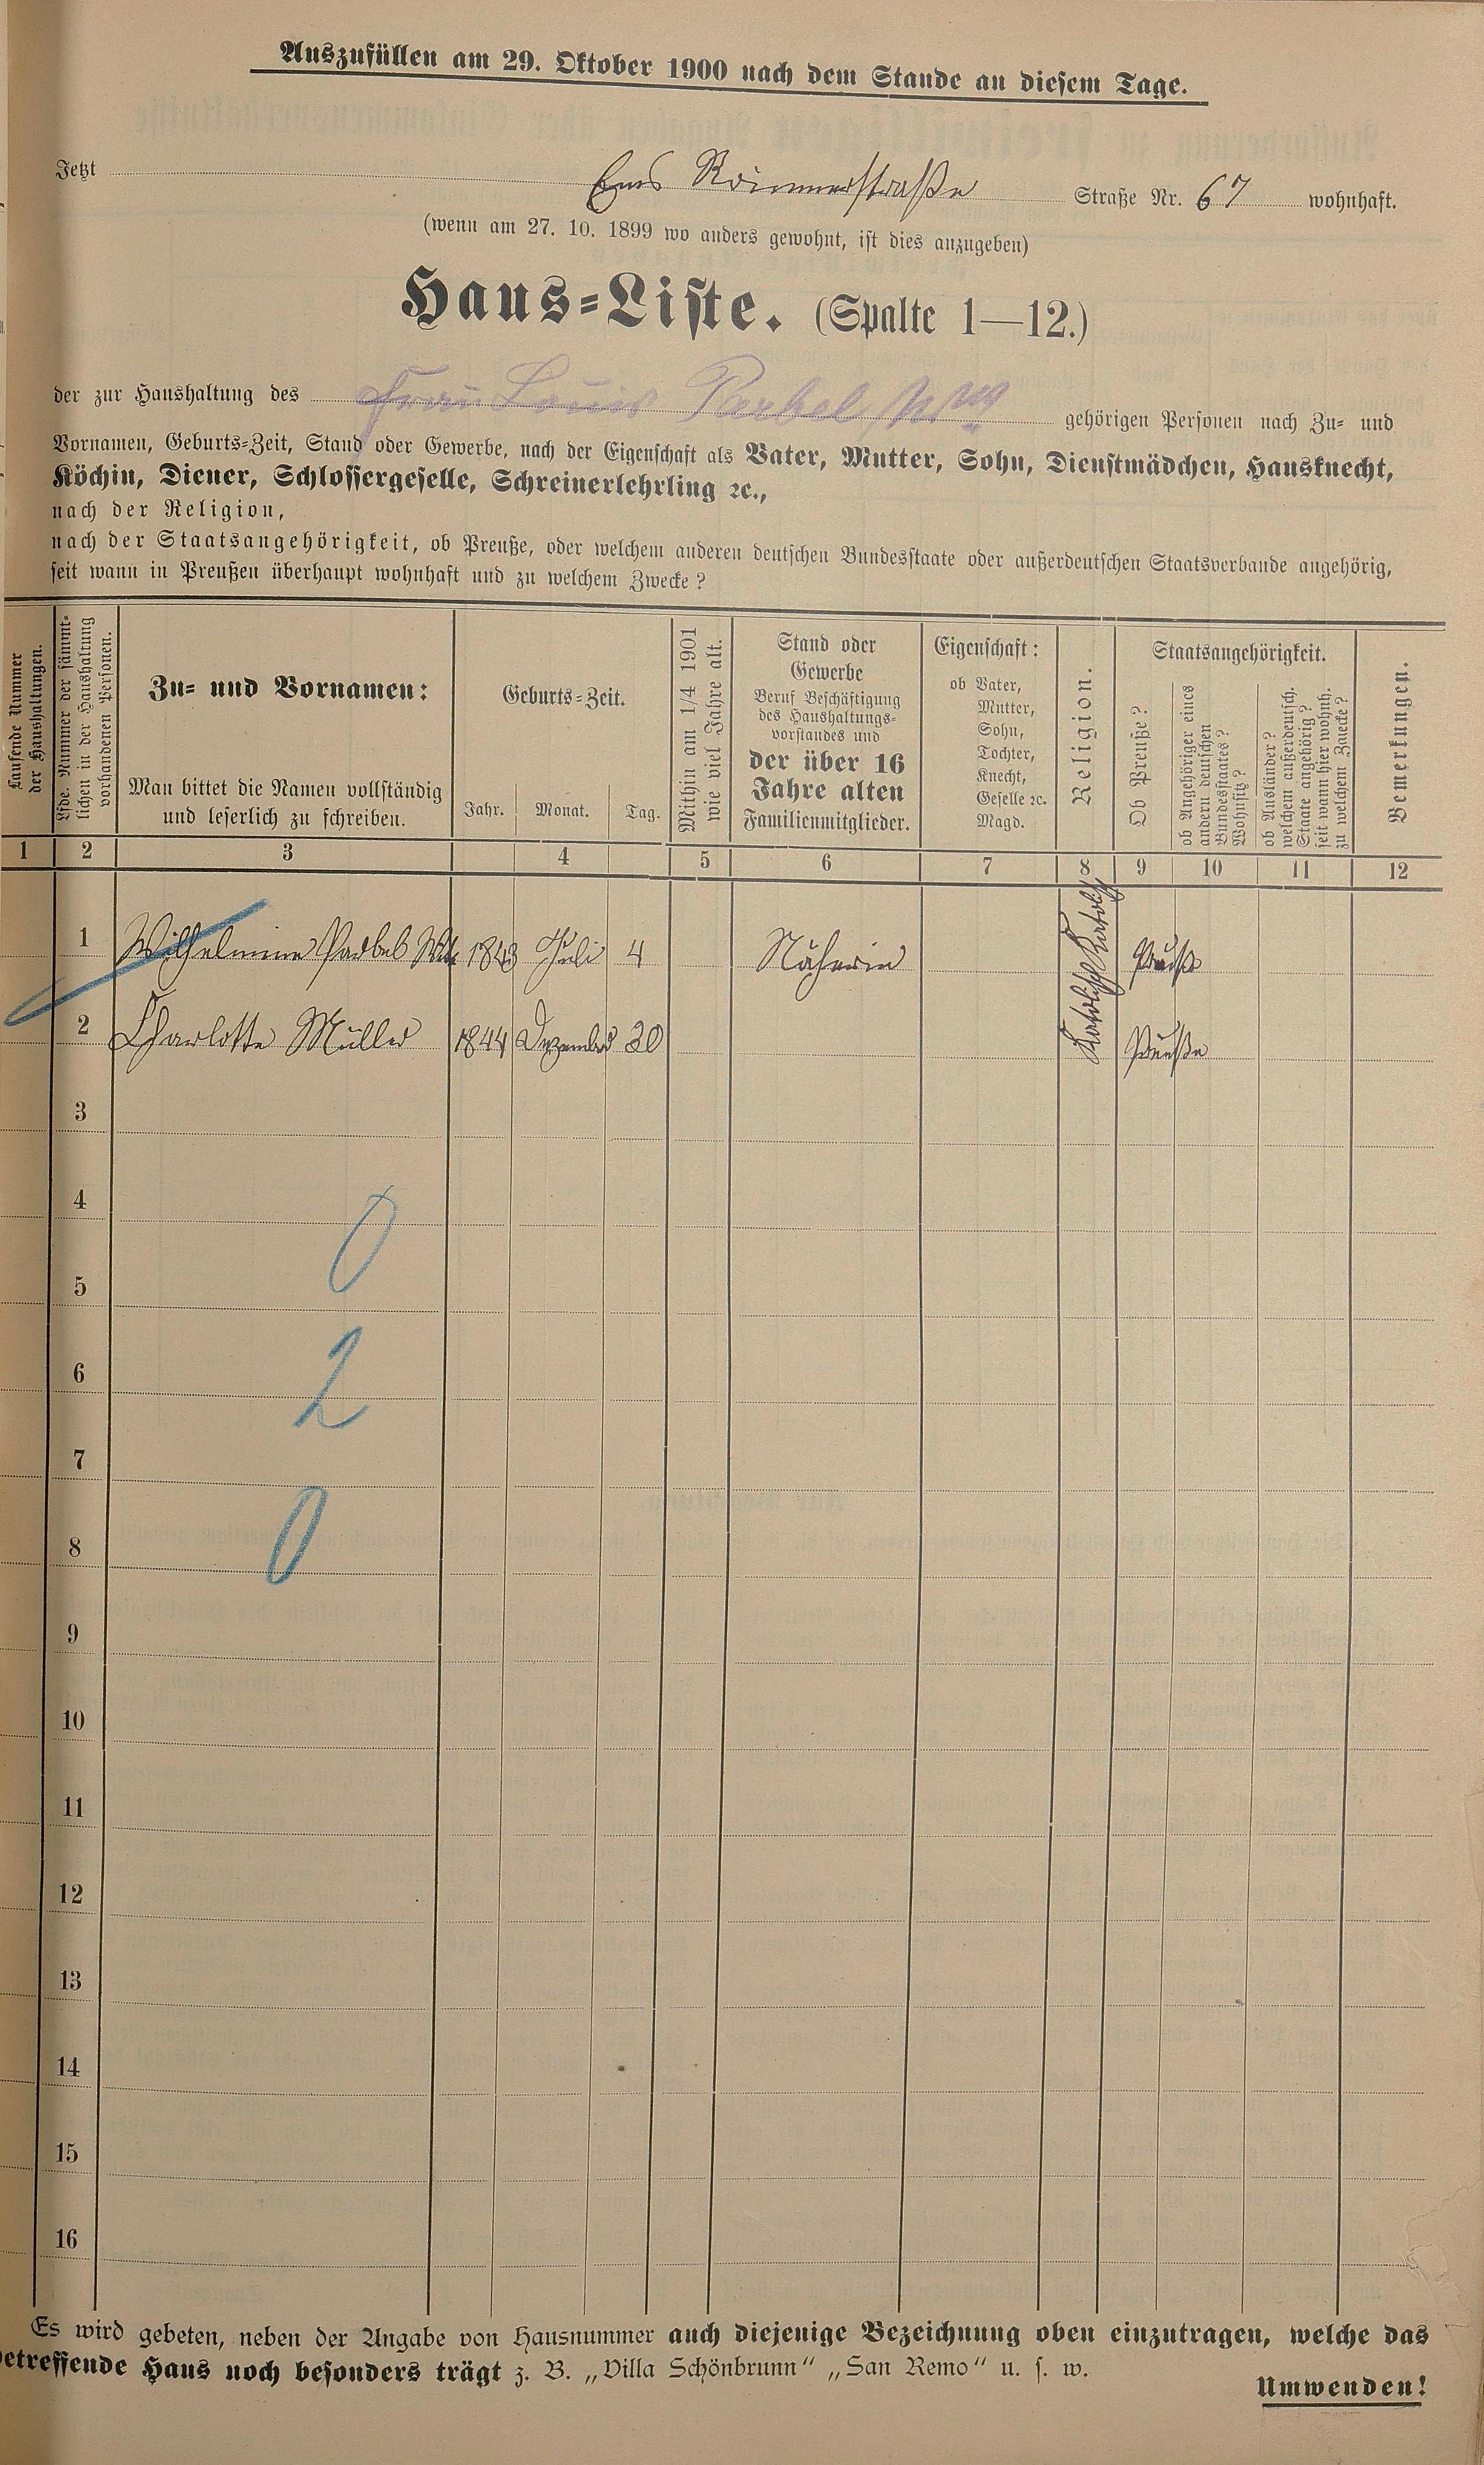 Auszufüllen am 29. Oktober 1900 nach dem Stande an diesem Tage.
Jetzt Ems Römerstraße Straße Nr. 67 wohnhaft.
(wenn am 27. 10. 1899 wo anders gewohnt, ist dies anzugeben)
Haus-Liste. (Spalte 1—12.)
der zur Haushaltung des Frau Louis gehörigen Personen nach Zu- und
Vornamen, Geburts-Zeit, Stand oder Gewerbe, nach der Eigenschaft als Vater, Mutter, Sohn, Dienstmädchen, Hausknecht,
Köchin, Diener, Schlossergeselle, Schreinerlehrling ꝛc.,
nach der Religion,
nach der Staatsangehörigkeit, ob Preuße, oder welchem anderen deutschen Bundesstaate oder außerdeutschen Staatsverbande angehörig,
seit wann in Preußen überhaupt wohnhaft und zu welchem Zwecke?
Laufende Nummer
der Haushaltungen.
Lfde. Nummer der sämmt-
lichen in der Haushaltung
vorhandenen Personen.
Zu- und Vornamen:
Man bittet die Namen vollständig
und leserlich zu schreiben.
Geburts-Zeit.
Jahr. Monat. Tag.
Mithin am 1/4 1901
wie viel Jahre alt.
Stand oder
Gewerbe
Beruf Beschäftigung
des Haushaltungs-
vorstandes und
der über 16
Jahre alten
Familienmitglieder.
Eigenschaft:
ob Vater,
Mutter,
Sohn,
Tochter,
Knecht,
Geselle ꝛc.
Magd.
Religion.
Staatsangehörigkeit.
Ob Preuße?
ob Angehöriger eines
andern deutschen
Bundesstaates?
Wohnsitz?
ob Ausländer?
welchem außerdeutsch.
Staate angehörig?
seit wann hier wohnh.
zu welchem Zwecke?
Bemerkungen.
1 2 3 4 5 6 7 8 9 10 11 12
1 Wilhelmine 1843 Juli 4 Näherin Katolh Preuße
2 Charlotte Müller 1844 Dezember 30 Katolisch Preuße
3
4
0
5
6
2
7
8
0
9
10
11
12
13
14
15
16
Es wird gebeten, neben der Angabe von Hausnummer auch diejenige Bezeichnung oben einzutragen, welche das
betreffende Haus noch besonders trägt z. B. „Villa Schönbrunn" „San Remo" u. s. w.
Umwenden!